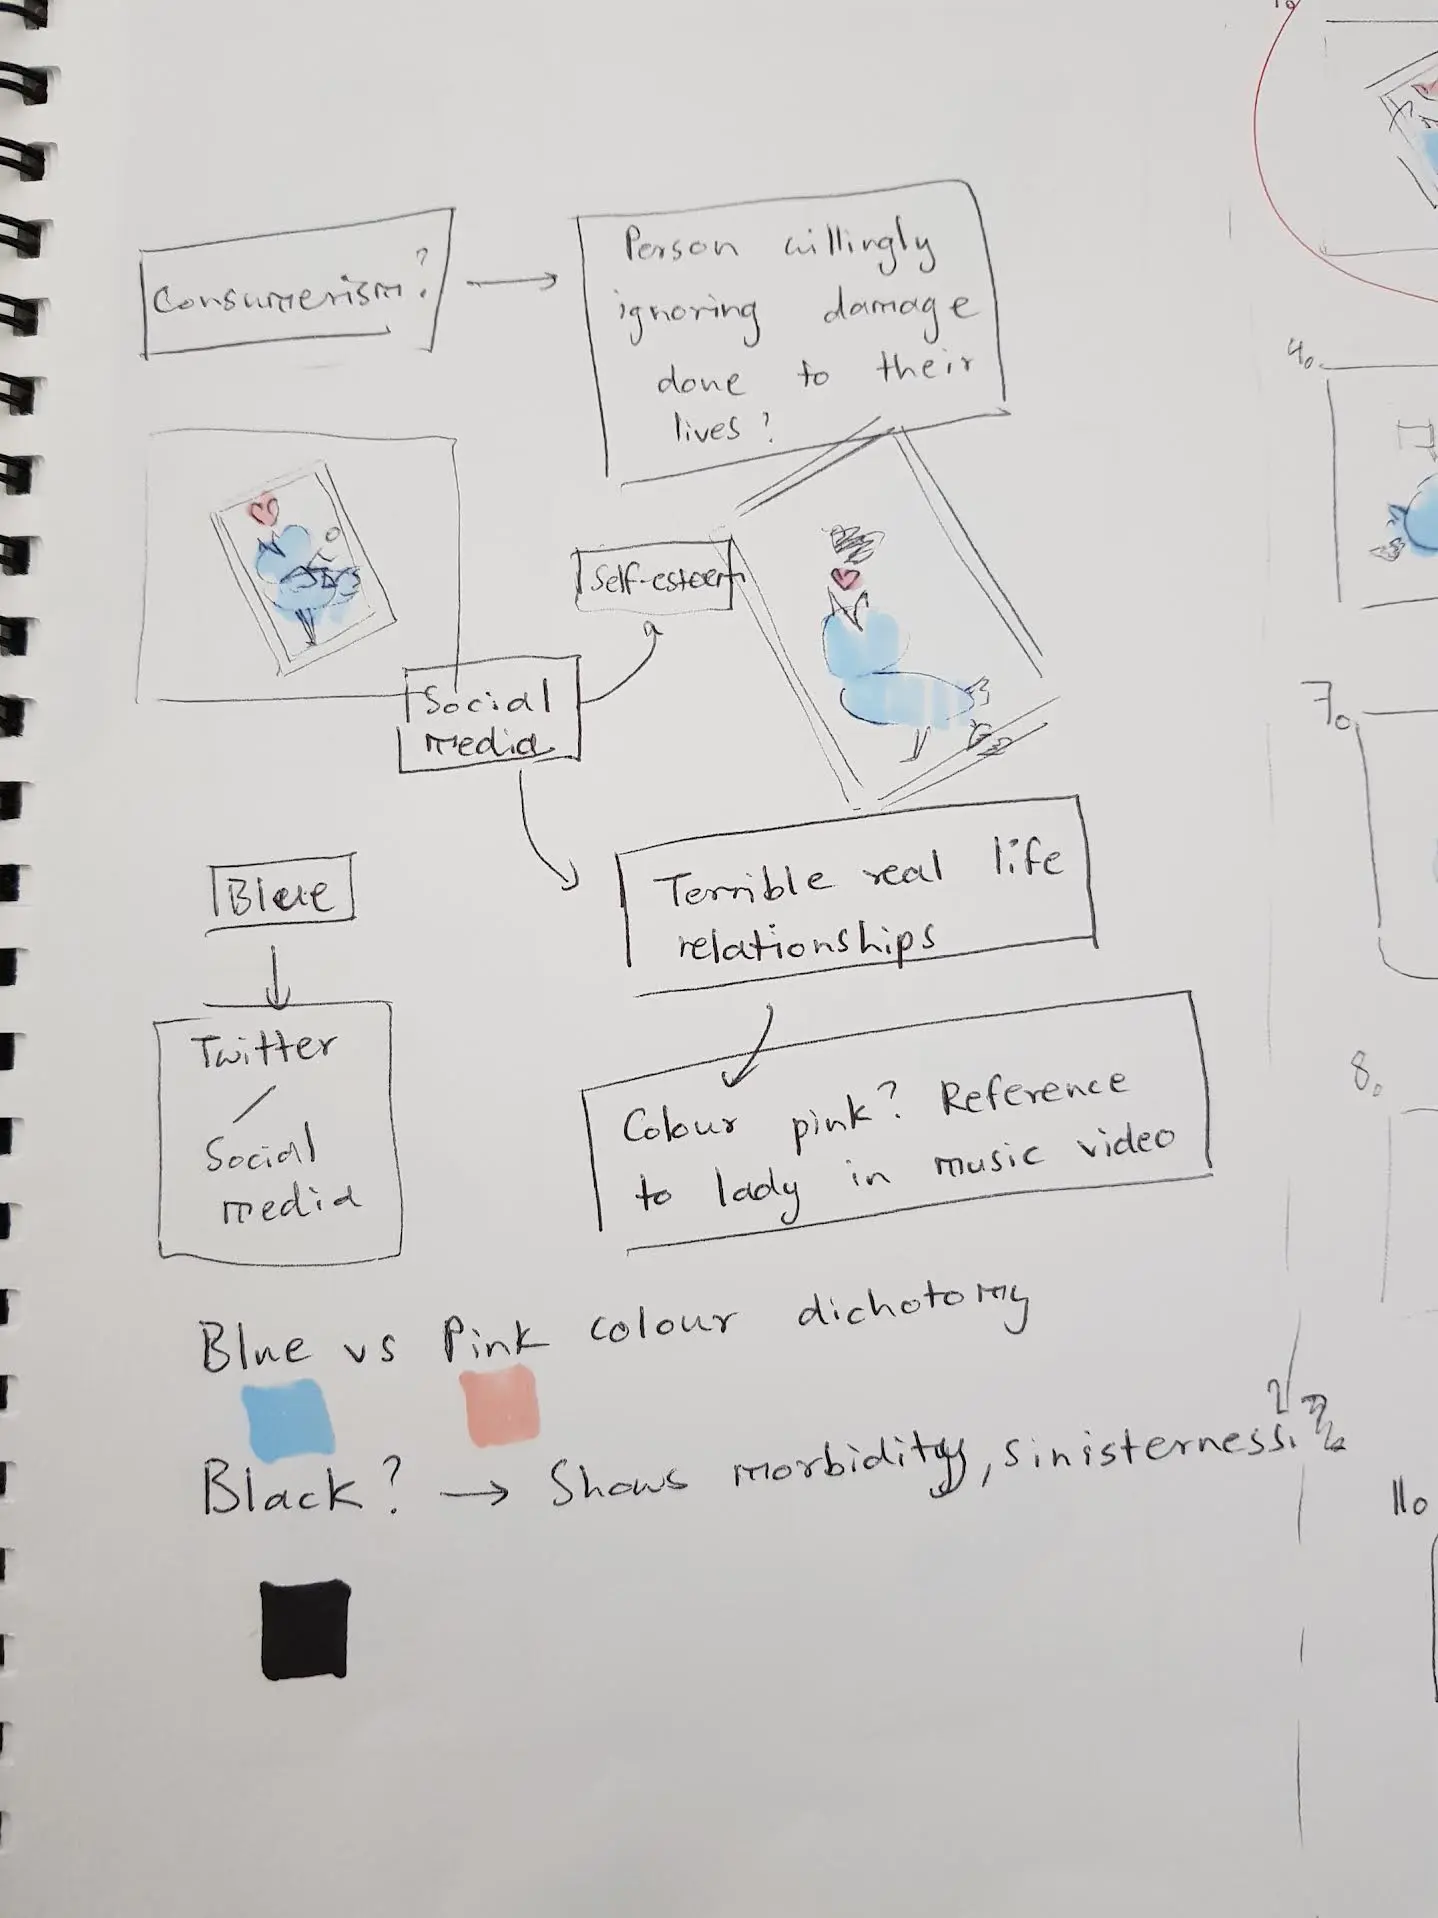 Consumerism?
Person willingly
ignoring damage
done to their
lives?
Self-esteem
Social
media
Blue
Terrible real life
relationships
Twitter
/
Social
media
Colour pink? Reference
to lady in music video
Blue vs Pink colour dichotomy
Black? → Shows morbidity, sinisterness.
4.
7.
8.
11.